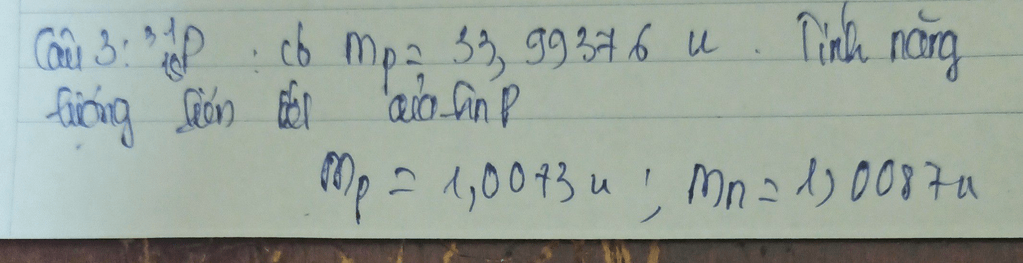 Câu 3: ³¹₁₅P : có mp = 33,99376 u. Tính năng
lượng liên kết của ion P
mp = 1,0073u ; mn = 1,0087u